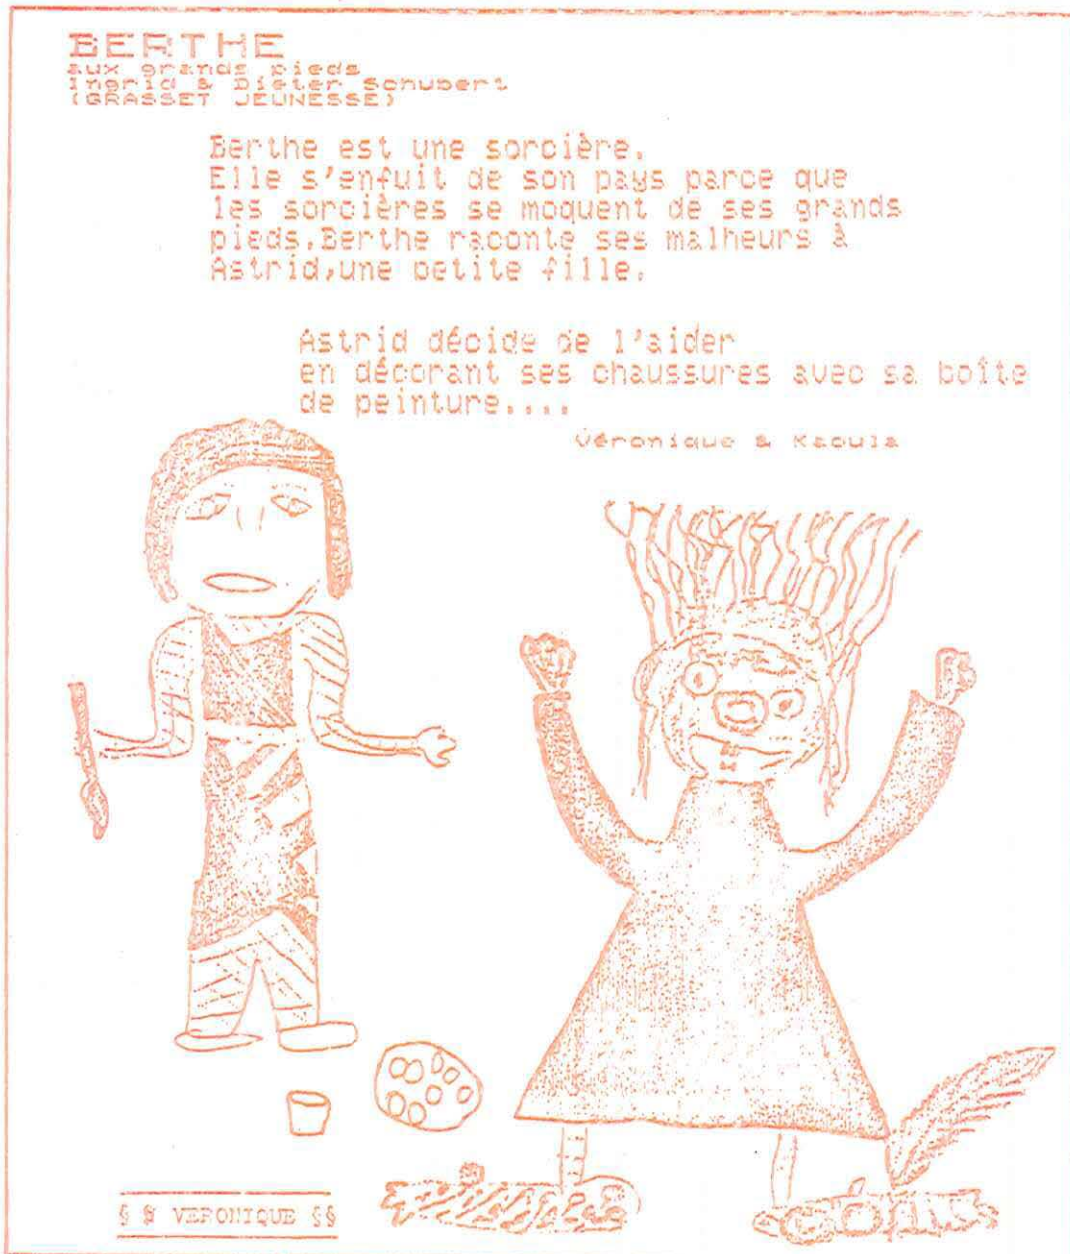 BERTHE
aux grands pieds
Ingrid & Dieter Schubert
(GRASSET JEUNESSE)
Berthe est une sorcière.
Elle s'enfuit de son pays parce que
les sorcières se moquent de ses grands
pieds.Berthe raconte ses malheurs à
Astrid,une petite fille.
Astrid décide de l'aider
en décorant ses chaussures avec sa boîte
de peinture....
Véronique & Kaoula
§ § VERONIQUE §§